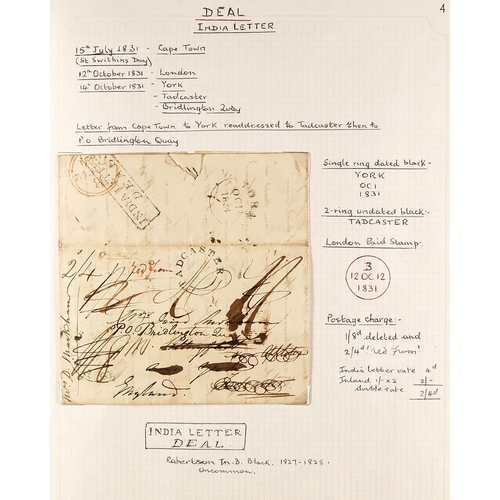 4
DEAL
INDIA LETTER
15th July 1831 - Cape Town
(St Swithins Day)
12th October 1831 - London
14th October 1831 - York
- Tadcaster
- Bridlington Quay
Letter from Cape Town to York readdressed to Tadcaster then to
P.O. Bridlington Quay
INDIA
DE
YORK
OC
1831
TADCASTER
2/4
red from
P.O. Bridlington
England.
Single ring dated black -
YORK
OC1
1831
2-ring undated black:-
TADCASTER
London Paid Stamp:
3
12 OC 12
1831
Postage charge:-
1/8d deleted and
2/4d 'red from'
India letter rate 4d
Inland 1/- x 2 2/-
double rate 2/4d
INDIA LETTER
DEAL
Robertson In.D. Black. 1827-1828:
Uncommon.